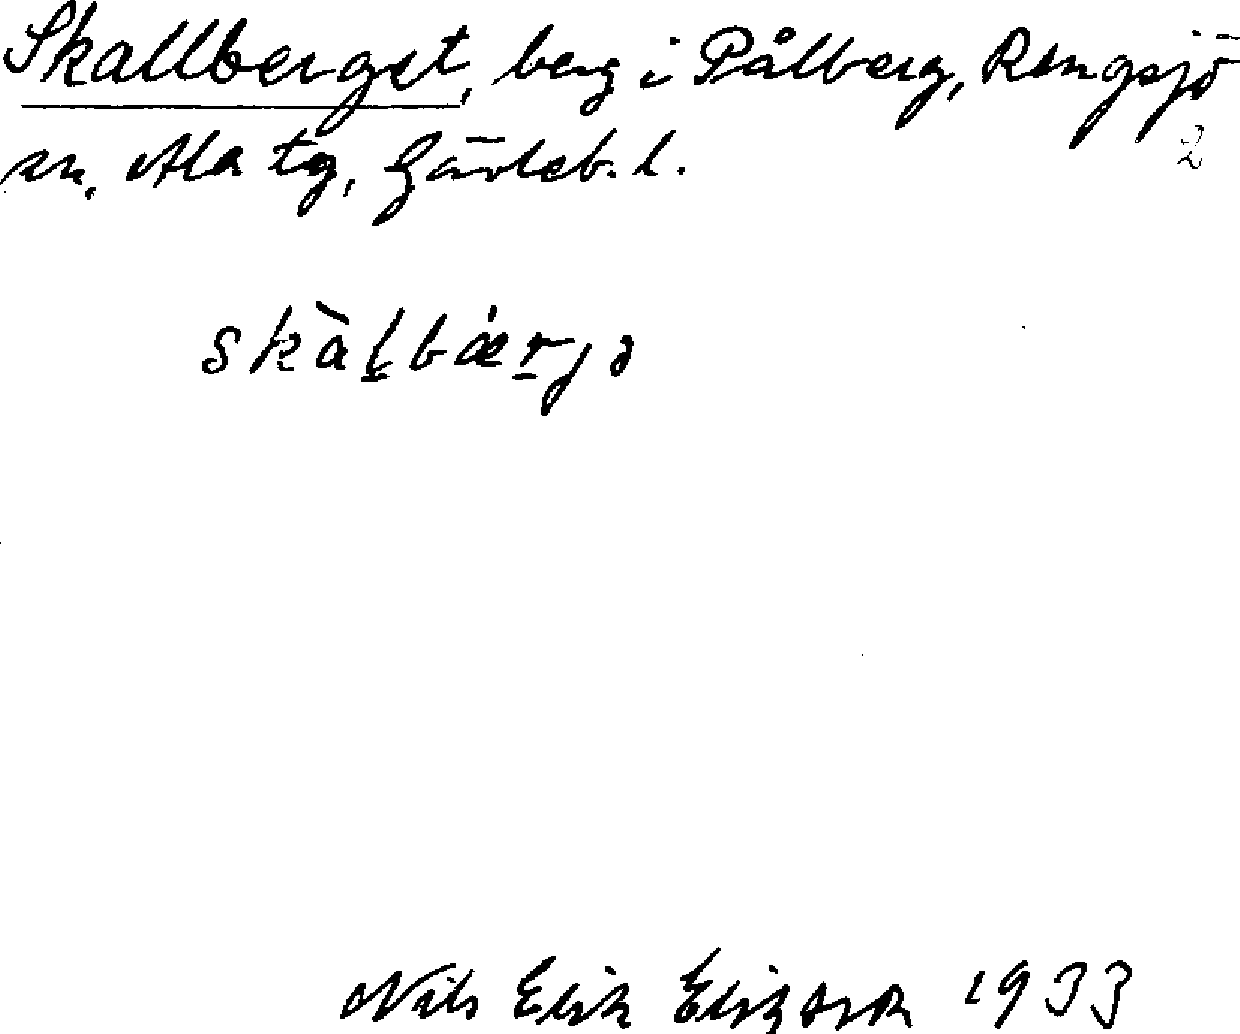 Skallberget, berg i Pålberg, Rengsjö
sn, Ala tg, Gävleb. l.
2
skàḻbǽṟjə
Nils Erik Eriksson 1933